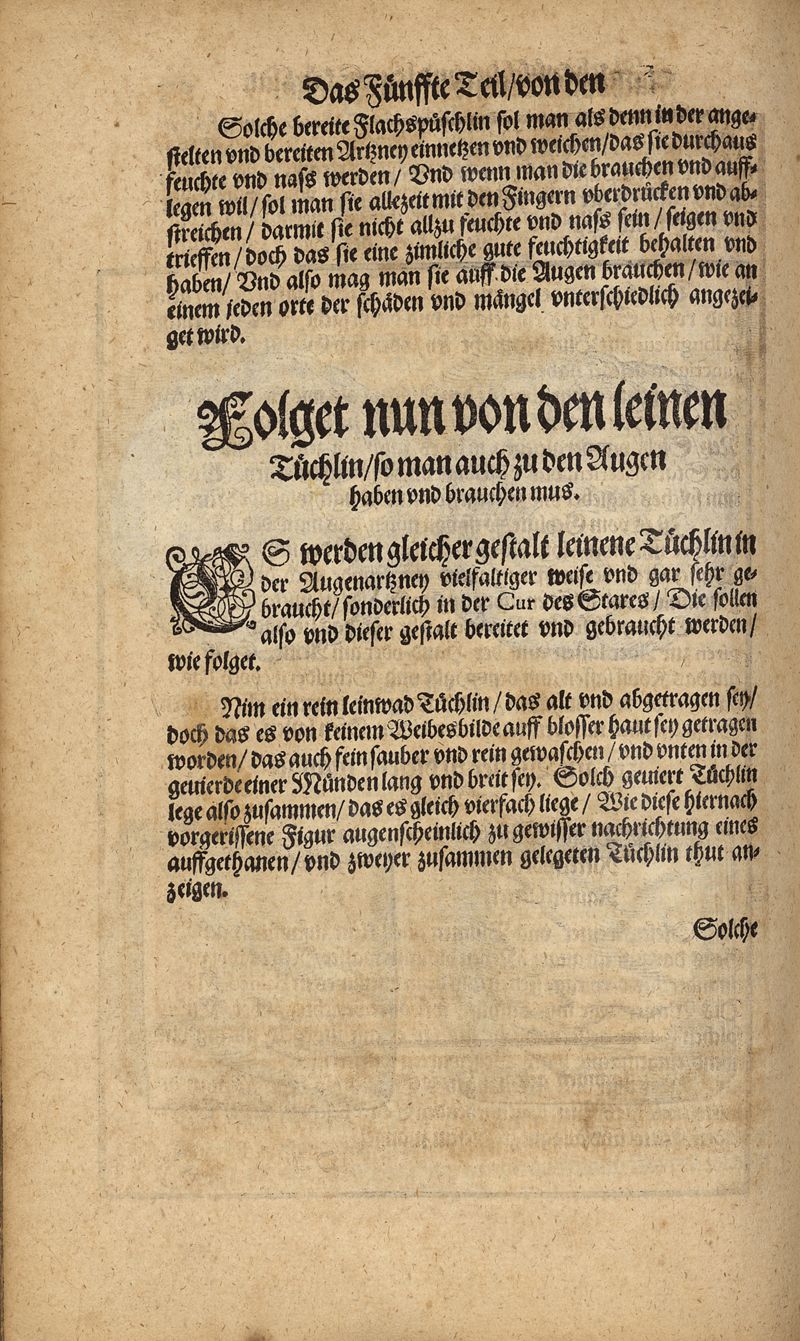 Das Fünffte Teil/von den
Solche bereite Flachspüschlin sol man als denn in der ange-
stelten vnd bereiten Artzney einnetzen vnd weichen/das sie durchaus
feuchte vnd nass werden/ Vnd wenn man die brauchen vnd auff-
legen wil/sol man sie allezeit mit den Fingern vberdrücken vnd ab-
streichen/ darmit sie nicht allzu feuchte vnd nass sein/seigen vnd
trieffen/doch das sie eine zimliche gute feuchtigkeit behalten vnd
haben/ Vnd also mag man sie auff die Augen brauchen/wie an
einem jeden orte der schäden vnd mängel vnterschiedlich angezei-
get wird.
Folget nun von den leinen
Tüchlin/so man auch zu den Augen
haben vnd brauchen mus.
ES werden gleicher gestalt leinene Tüchlin in
der Augenartzney vielfaltiger weise vnd gar sehr ge-
braucht/sonderlich in der Cur des Stares/ Die sollen
also vnd dieser gestalt bereitet vnd gebraucht werden/
wie folget.
Nim ein rein leinwad Tüchlin/das alt vnd abgetragen sey/
doch das es von keinem Weibesbilde auff blosser haut sey getragen
worden/das auch fein sauber vnd rein gewaschen/vnd vnten in der
geuierde einer Münden lang vnd breit sey. Solch geuiert Tüchlin
lege also zusammen/das es gleich vierfach liege/ Wie diese hiernach
vorgerissene Figur augenscheinlich zu gewisser nachrichtung eines
auffgethanen/vnd zweyer zusammen gelegeten Tüchlin thut an-
zeigen.
Solche